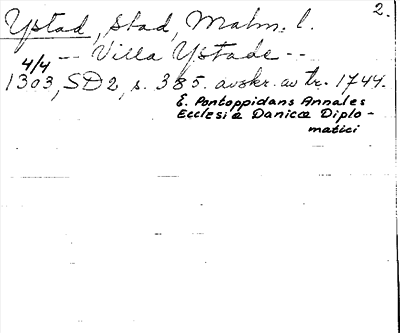 Ystad, stad, Malm. l. 2.
-- Villa Ystade --
4/4
1303, SD2, s. 385. avskr. av tr. 1744.
E. Pontoppidans Annales
Ecclesiæ Danicæ Diplo-
matici